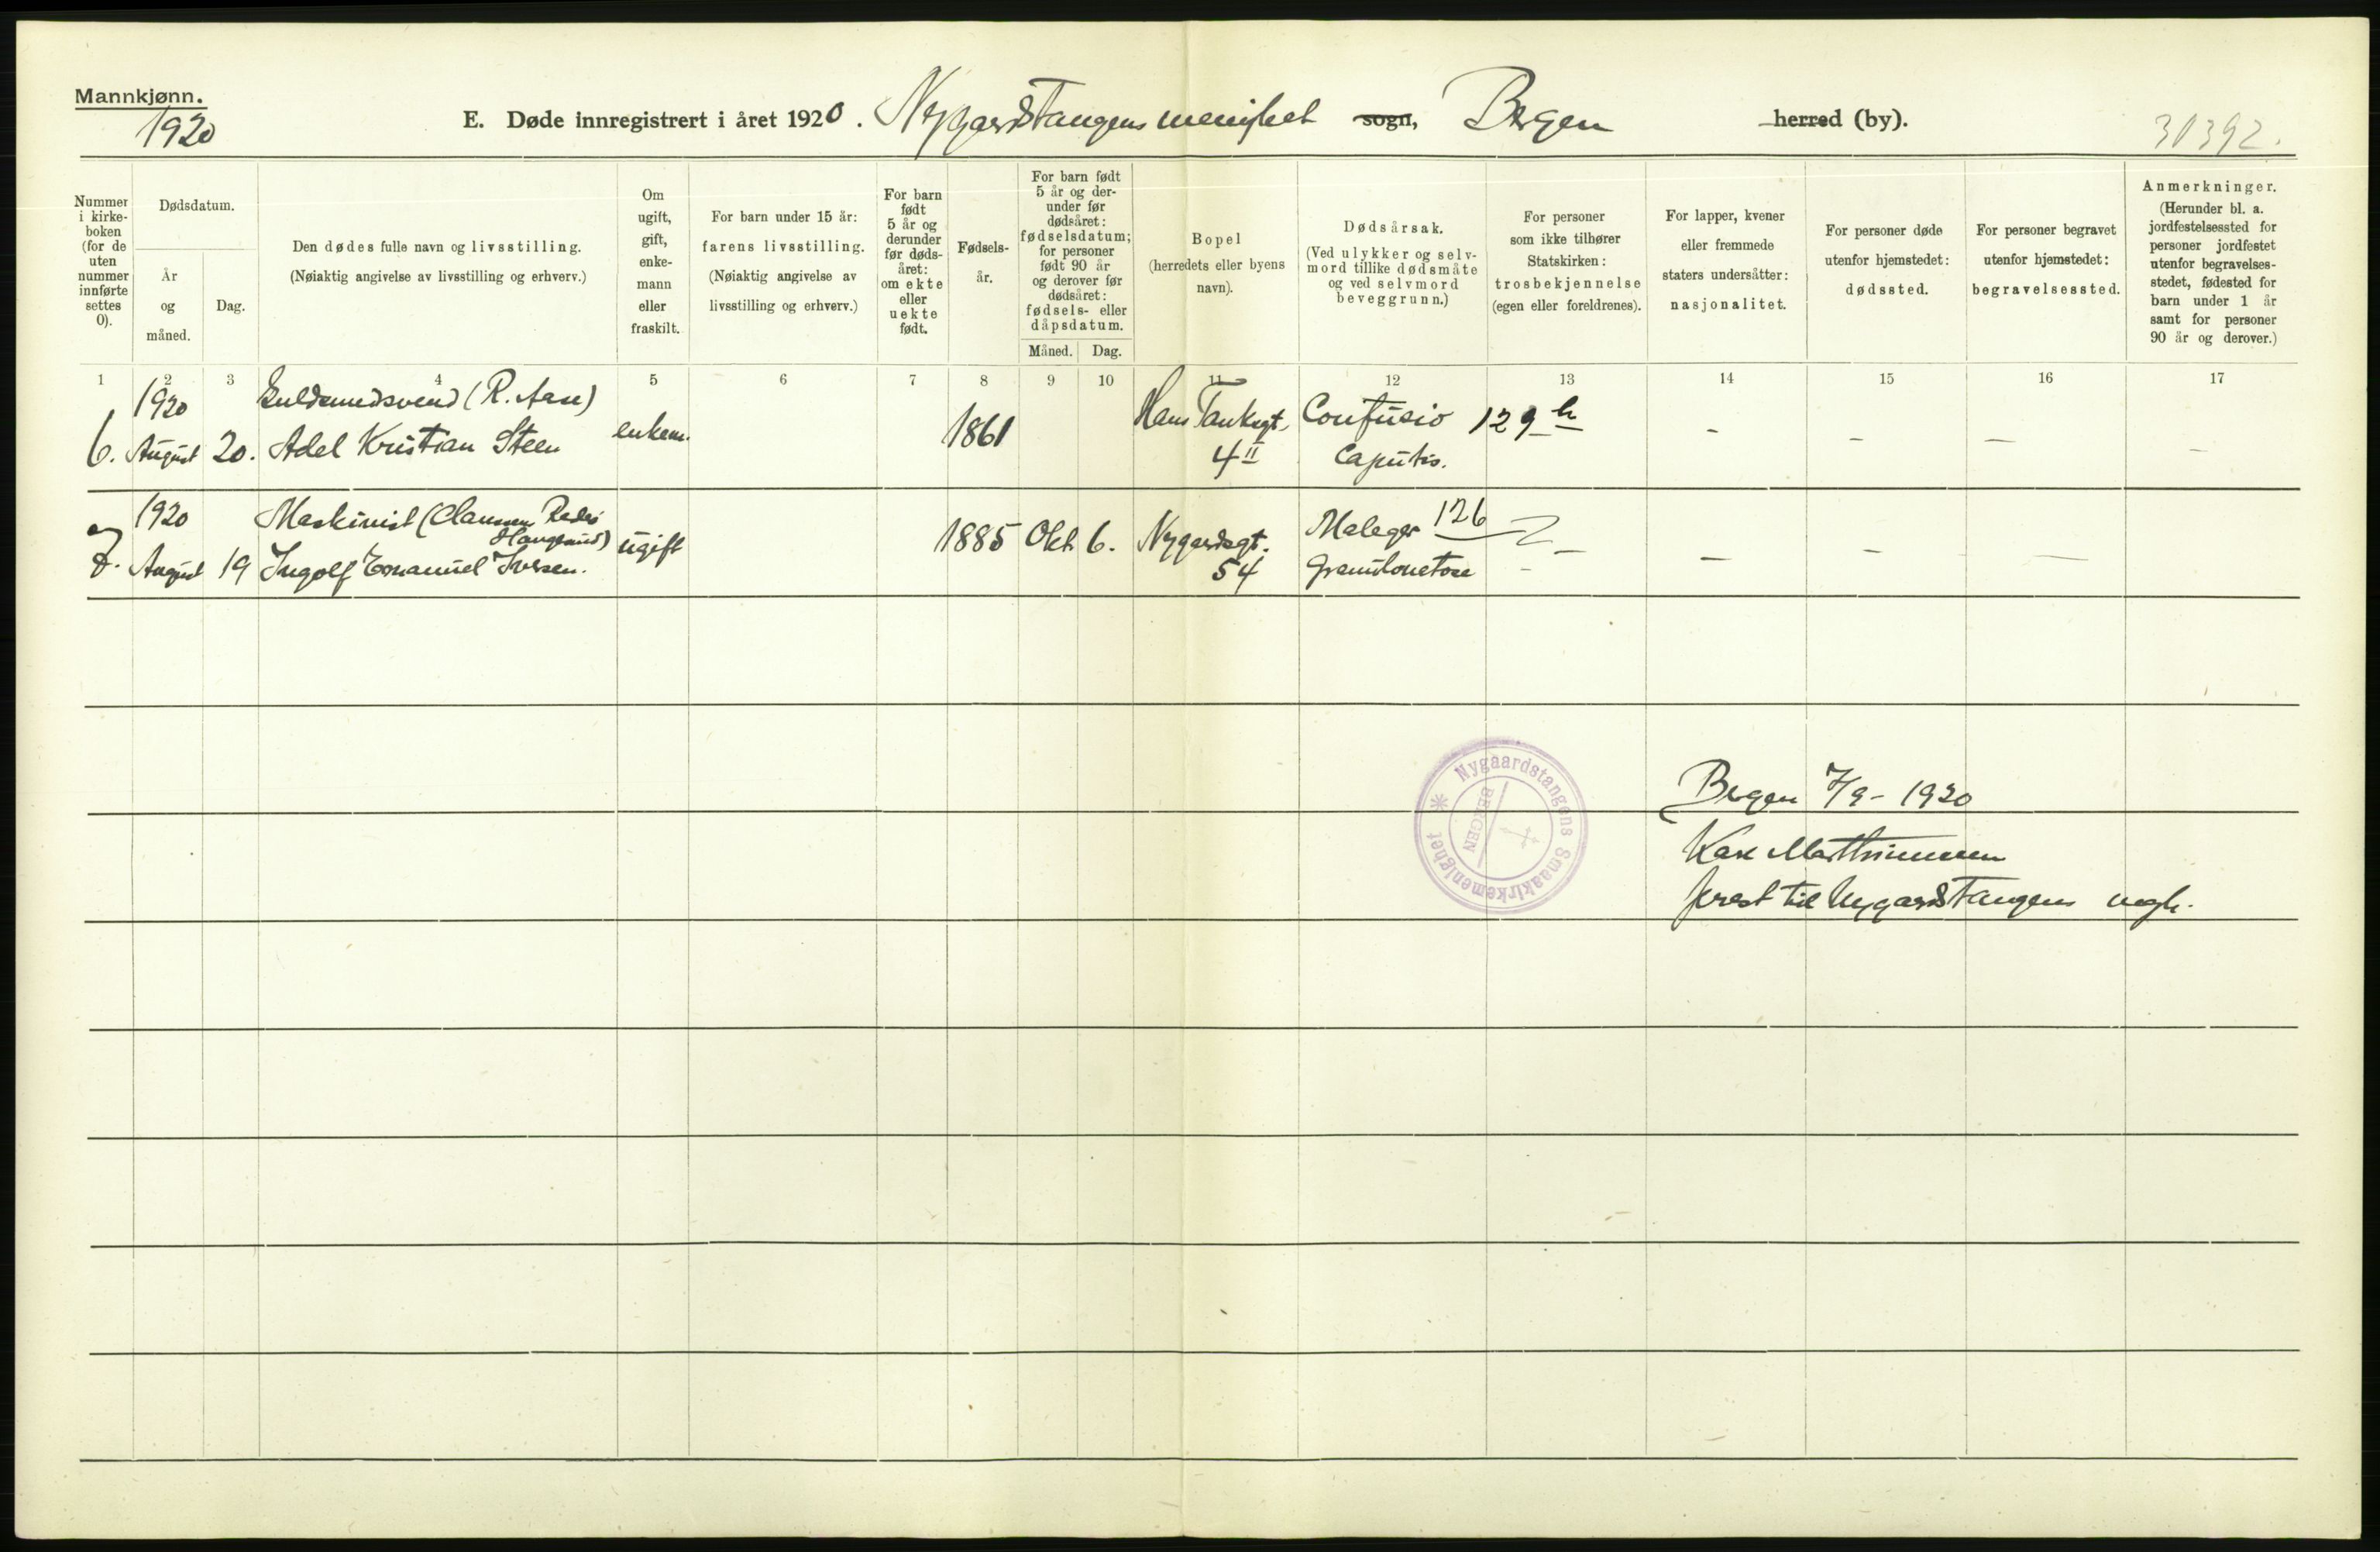 Mannkjønn.
1920
E. Døde innregistrert i året 1920. Nygaardstangens menighet sogn, Bergen herred (by).
30392.
Nummer i kirke-boken (for de uten nummer innførte settes 0).
Dødsdatum.
År og måned.
Dag.
Den dødes fulle navn og livsstilling.
(Nøiaktig angivelse av livsstilling og erhverv.)
Om ugift, gift, enke-mann eller fraskilt.
For barn under 15 år:
farens livsstilling.
(Nøiaktig angivelse av
livsstilling og erhverv.)
For barn født 5 år og derunder før døds-året: om ekte eller uekte født.
Fødsels-år.
For barn født 5 år og der-under før dødsåret: fødselsdatum; for personer født 90 år og derover før dødsåret: fødsels- eller dåpsdatum.
Måned. Dag.
Bopel
(herredets eller byens
navn).
Dødsårsak.
(Ved ulykker og selv-
mord tillike dødsmåte
og ved selvmord
beveggrunn.)
For personer
som ikke tilhører
Statskirken:
trosbekjennelse
(egen eller foreldrenes).
For lapper, kvener
eller fremmede
staters undersåtter:
nasjonalitet.
For personer døde
utenfor hjemstedet:
dødssted.
For personer begravet
utenfor hjemstedet:
begravelsessted.
Anmerkninger.
(Herunder bl. a.
jordfestelsessted for
personer jordfestet
utenfor begravelses-
stedet, fødested for
barn under 1 år
samt for personer
90 år og derover.)
1 2 3 4 5 6 7 8 9 10 11 12 13 14 15 16 17
1920 Guldsmedsvend (R. Aase) enkem. 1861 Hans Tanksgt. Confusio 129 b - - - -
6. August 20. Adel Kristian Steen 4 II Caputis.
1920 Maskinist (Clausen Rederi Haugesund) ugift 1885 Okt 6. Nygaardsgt. Maleger 126 - - - -
7. August 19 Ingolf Emanuel Iversen. 54
Nygaardstangens Smaakirkemenighet
BERGEN
Bergen 7/9 - 1920
prest til Nygaardstangens mgh.